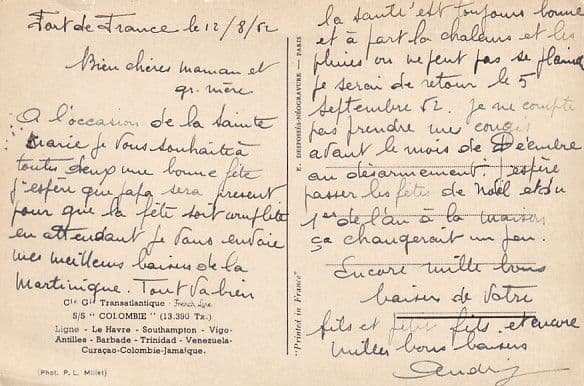 Fort de France le 12/8/62
Bien chères maman et
gr. mère
A l'occasion de la Sainte
Marie je vous souhaite à
toutes deux une bonne fête
j'espère que papa sera présent
pour que la fête soit complète
en attendant je vous envoie
mes meilleurs baisers de la
Martinique. Tout va bien
Cie Gle Transatlantique - French Line
S/S " COLOMBIE " (13.390 Tx.)
Ligne - Le Havre - Southampton - Vigo-
Antilles - Barbade - Trinidad - Venezuela-
Curaçao-Colombie-Jamaïque.
(Photo. P. L. Millet)
E. DESFOSSÉS-NÉOGRAVURE — PARIS
"Printed in France"
la santé est toujours bonne
et à part la chaleur et les
pluies on ne peut pas se plaindre
je serai de retour le 5
septembre 62. je ne compte
pas prendre mes congés
avant le mois de Décembre
au désarmement. j'espère
passer les fêtes de Noël et du
1er de l'an à la maison
ça changerait un peu.
Encore mille bons
baisers de votre
fils et petit fils. et encore
milles bons baisers
André